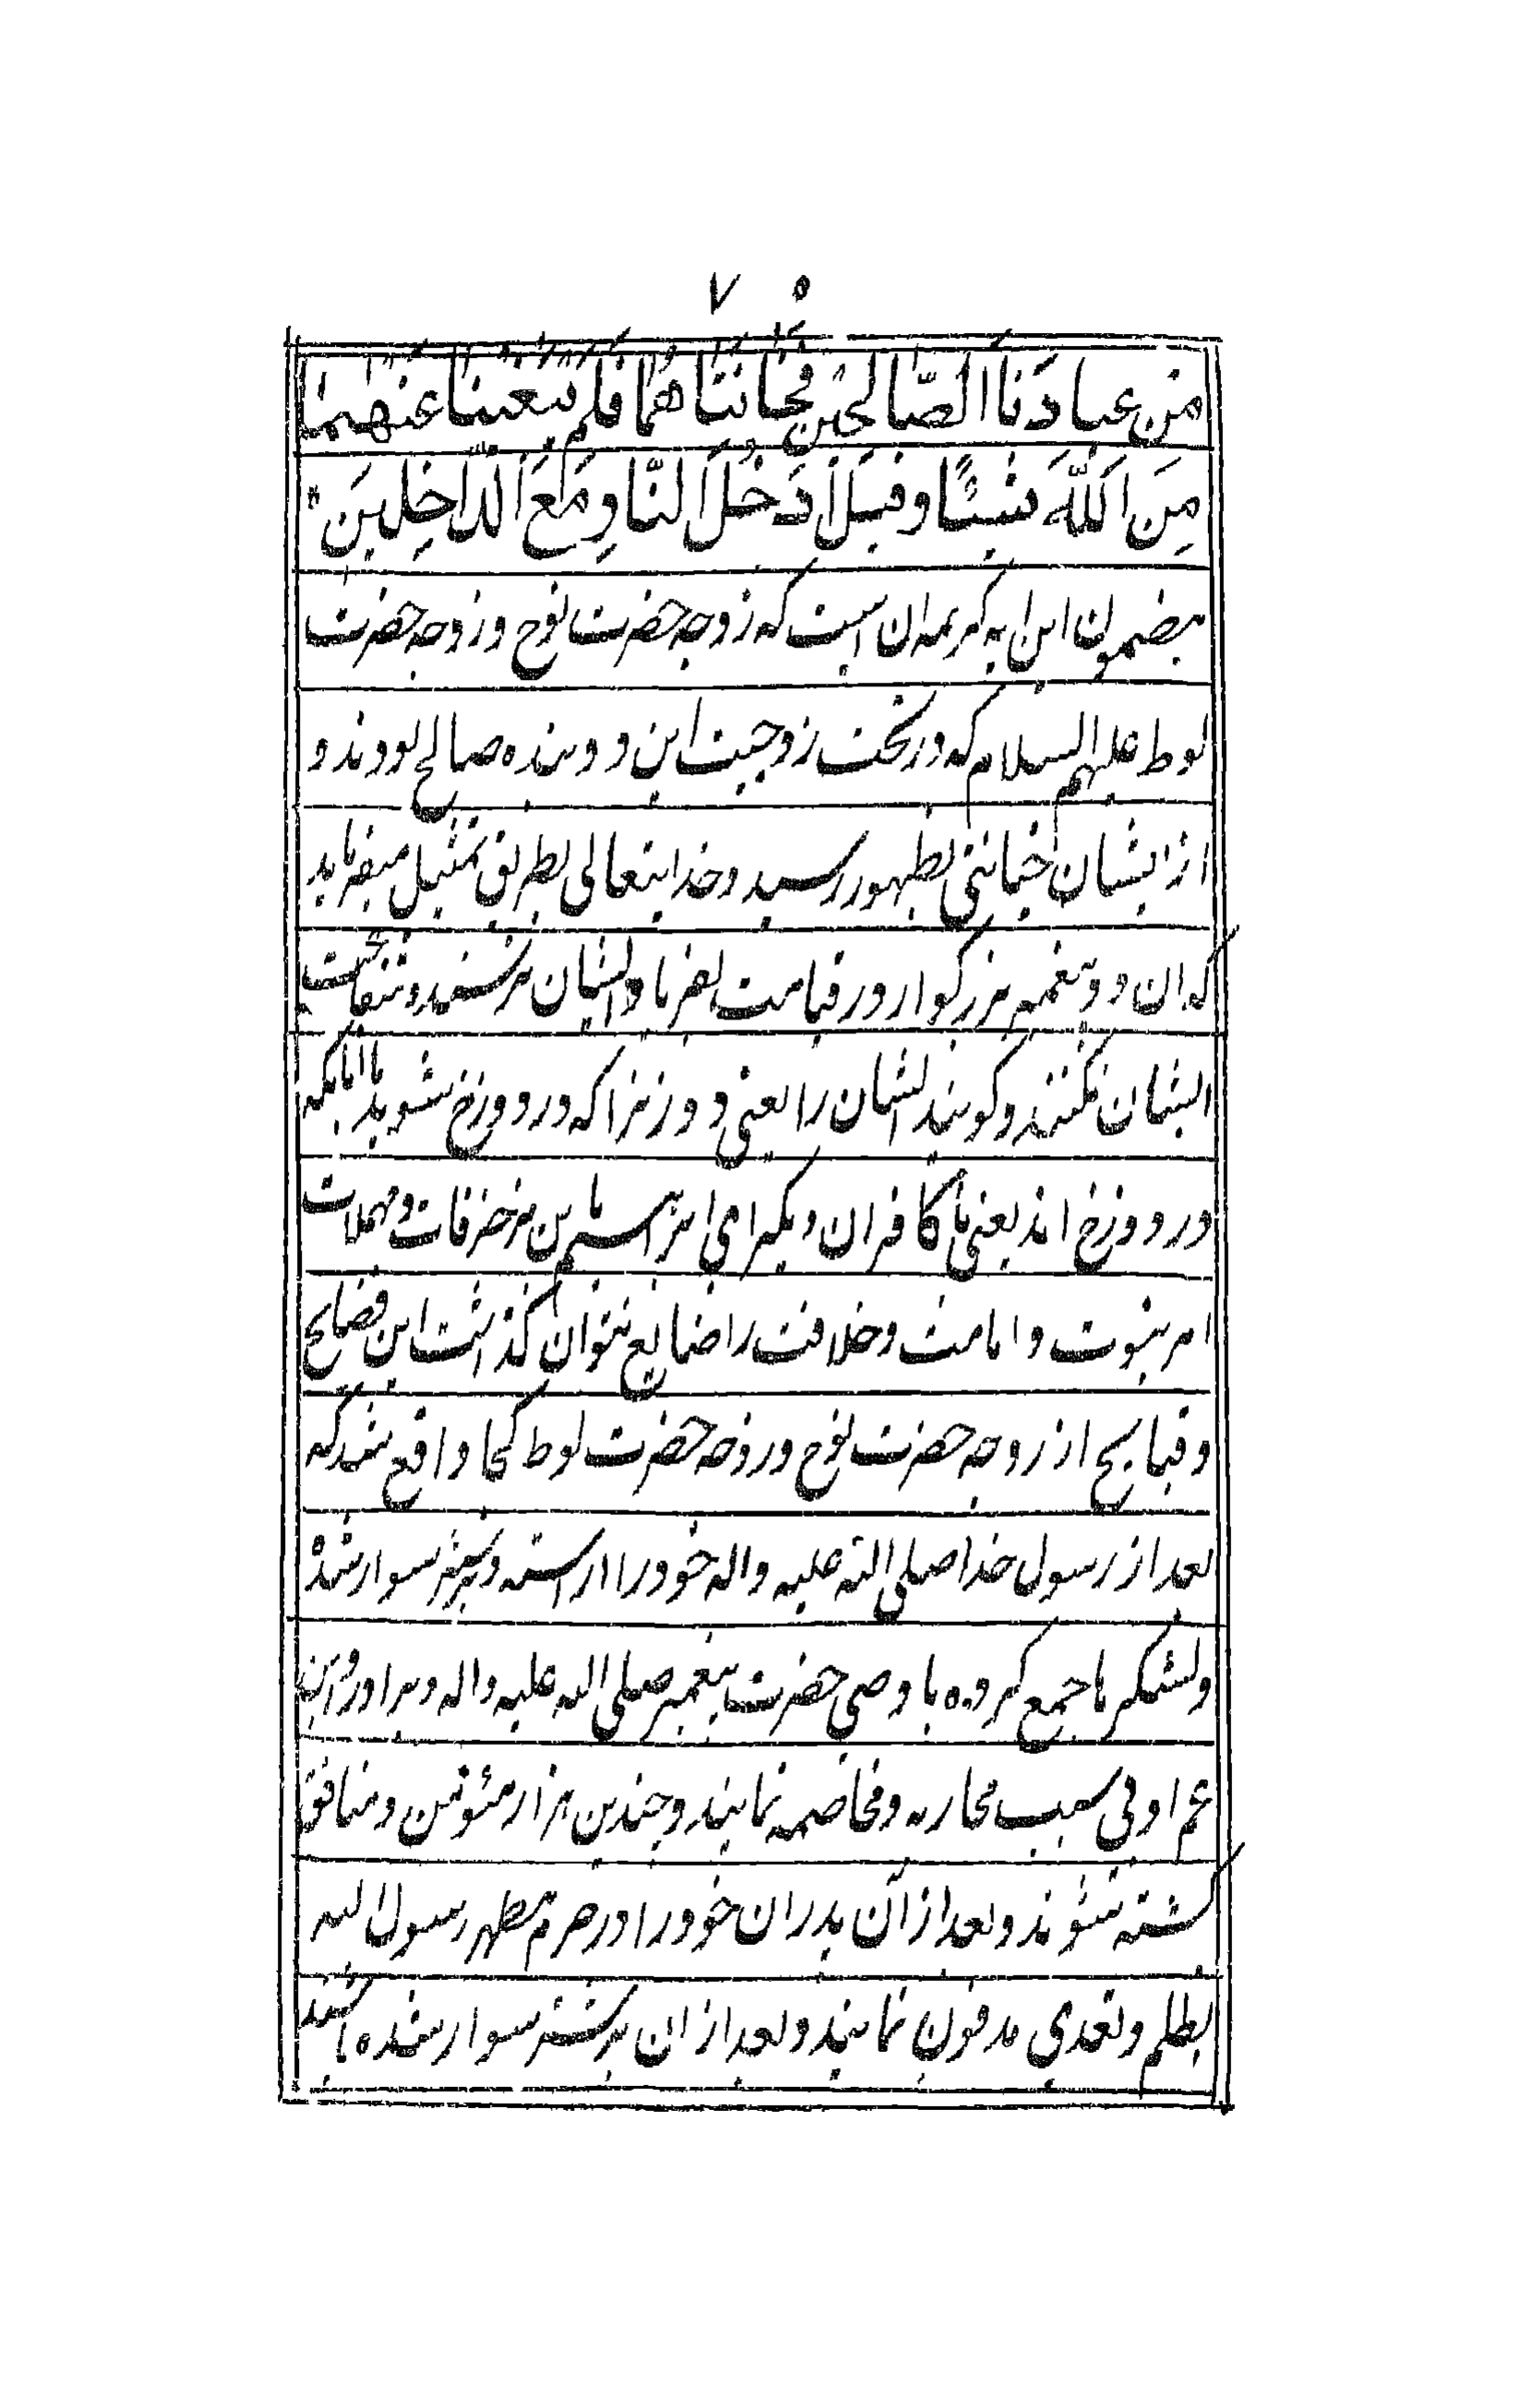 ۷۵
مِن عبادَنَا الصّالحَین فخَانَتاهُما فَلَم یُغنیا عَنهُما
مِنَ اَللّٰهَ شَیئًا وقیلَ ادَخُلَا النّارِ مَعَ الدّاخِلینَ
مضمون این ایه کریمه ان است که زوجه حضرت نوح و زوجه حضرت
لوط علیهم السلام که در تحت زوجیت این دو بنده صالح بودند و
از ایشان خیانتی بظهور رسید و خدایتعالی بطریق تمثیل میفرماید
که ان دو پیغمبر بزرگوار در قیامت بفریاد ایشان نرسند و شفاعت
ایشان نکنند و گویند ایشان را یعنی دو زنرا که در دوزخ شوید با انانکه
در دوزخ اند یعنی با کافران دیگر امی ابراهیم باین مزخرفات و مهملات
امر نبوت و امامت و خلافت را ضایع نتوان گذاشت این فضایح
و قبایح از زوجه حضرت نوح و زوجه حضرت لوط کجا واقع شد که
بعد از رسول خدا صلی الله علیه واله خود را اراسته و بر شتر سوار شده
و لشکرها جمع کرده با وصی حضرت پیغمبر صلی الله علیه واله و برادر و ابن
عم او بی سبب محاربه و مخاصمه نمایند و چندین هزار مئومن و منافق
کشته شوند و بعد از آن پدران خود را در حرم مطهر رسول الله
بظلم و تعدی مدفون نمایند و بعد از ان بر شتر سوار شده